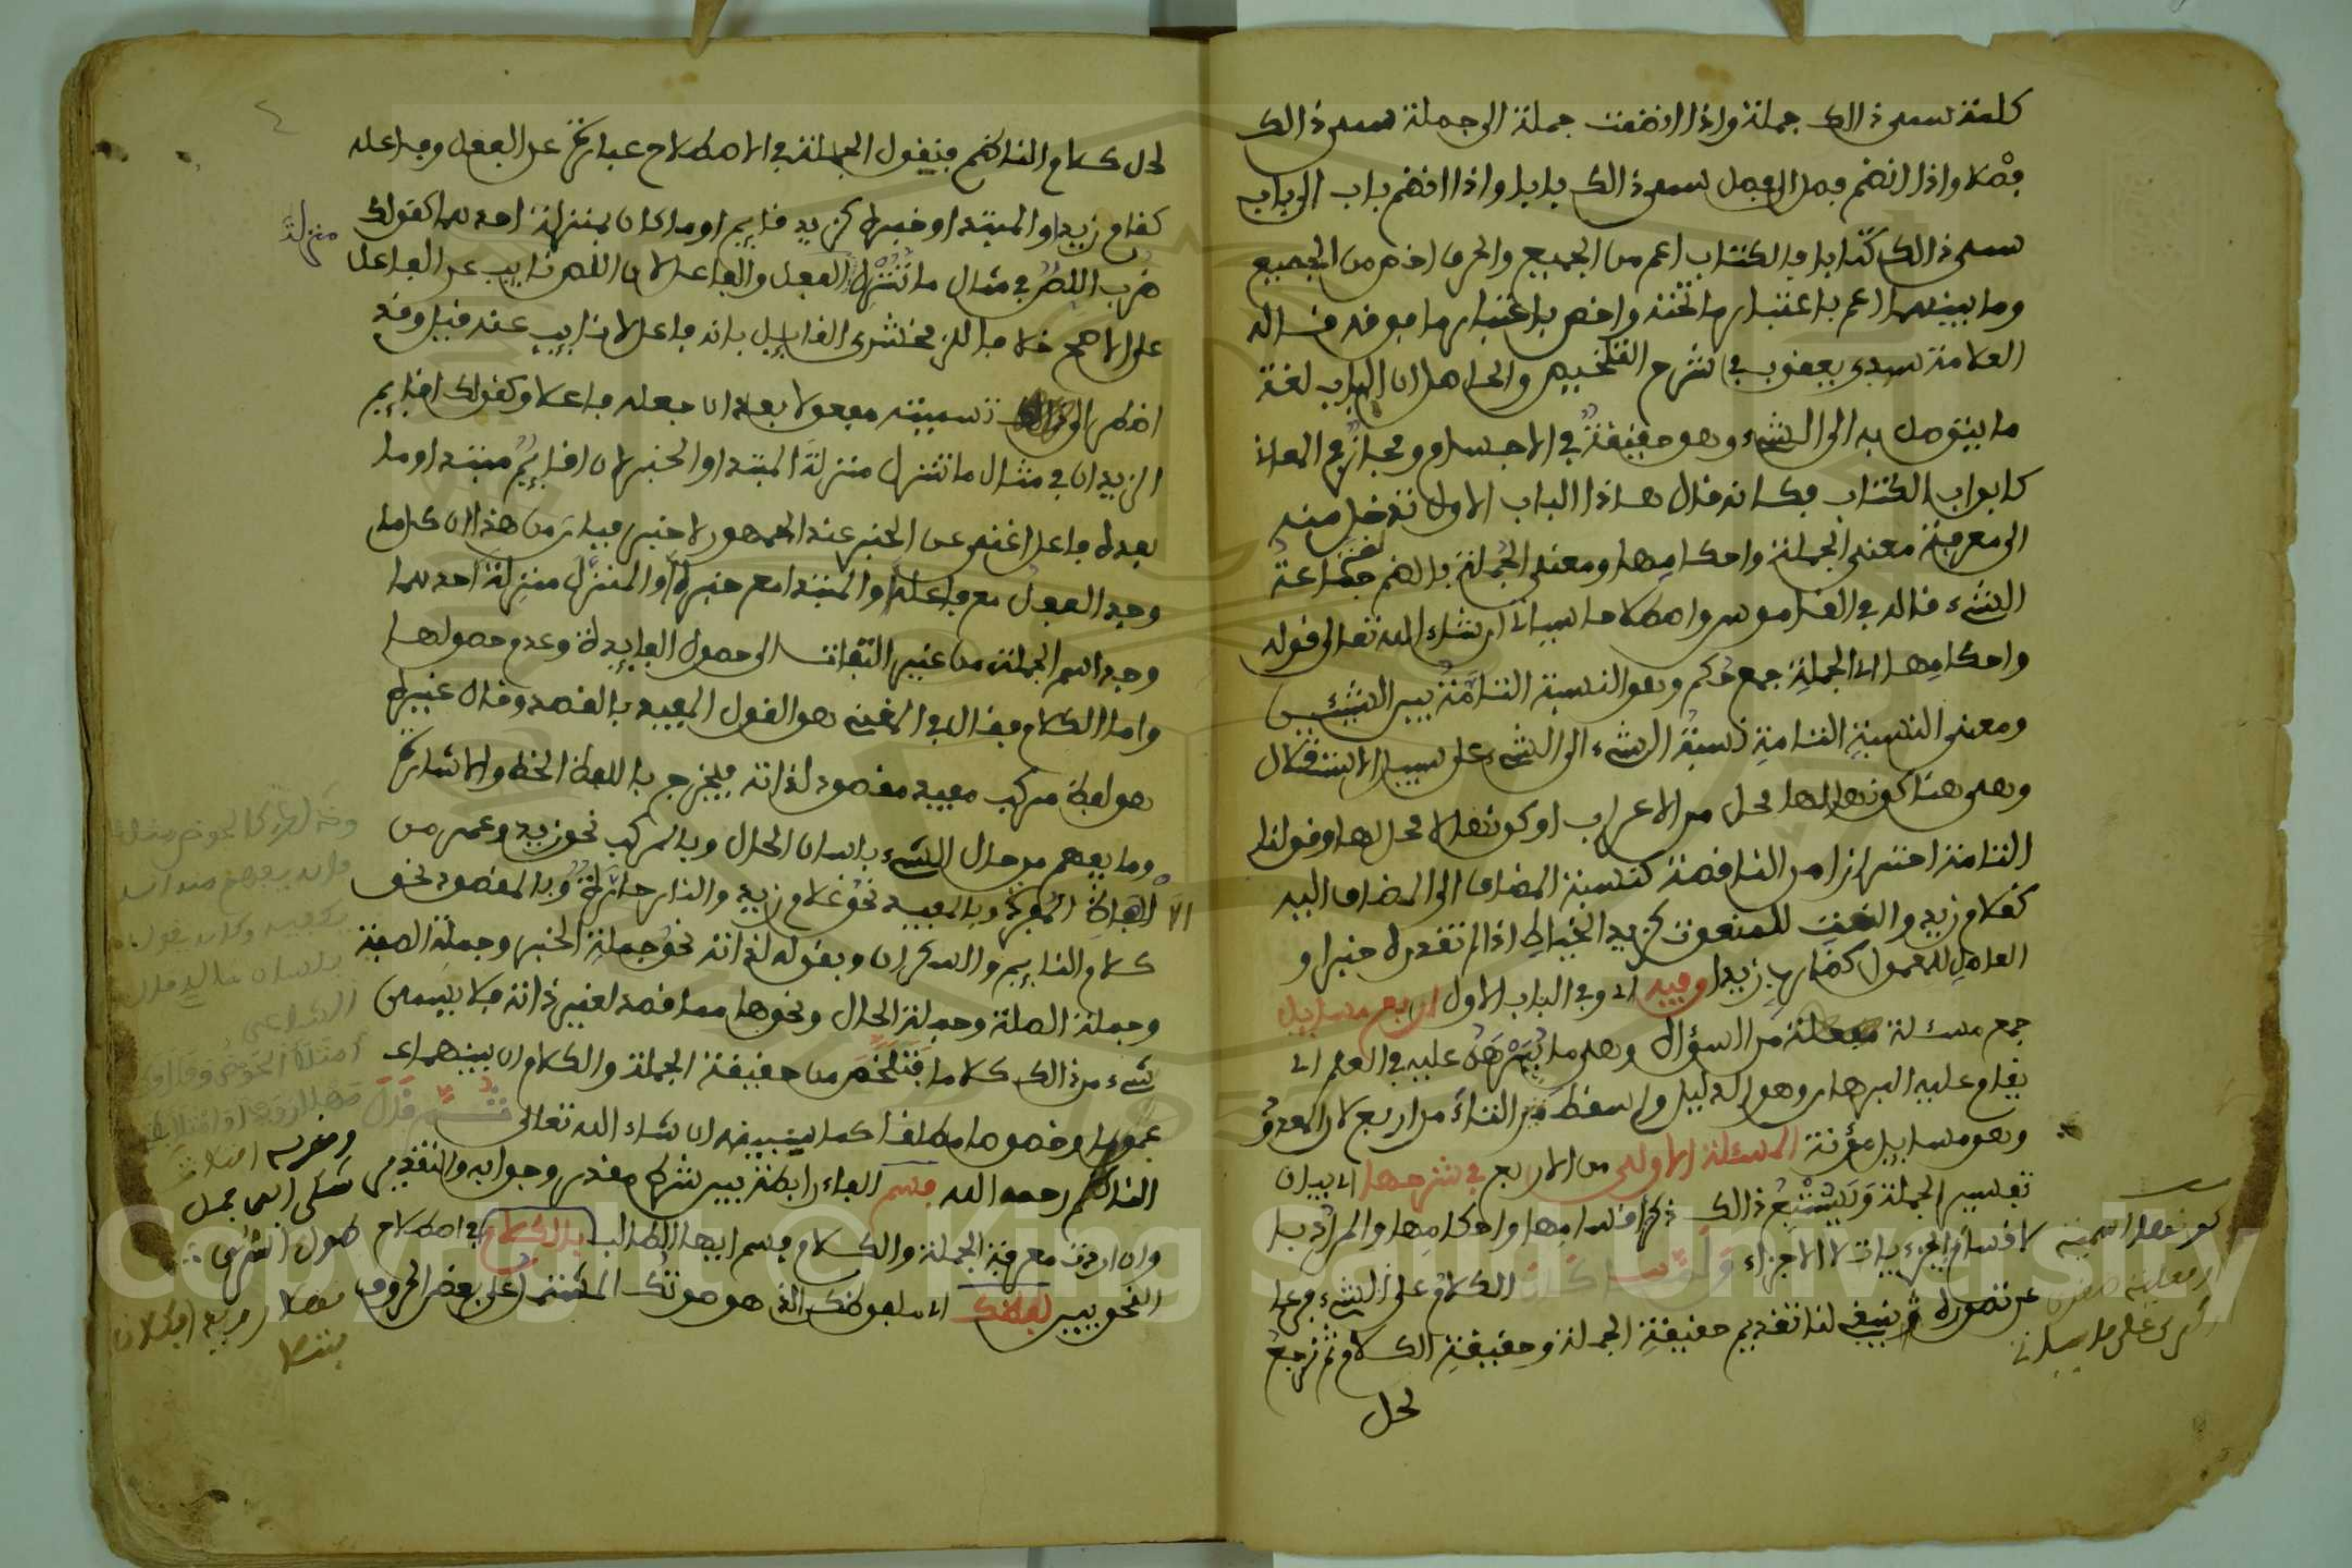 كلمة سمي ذالك جملة واذا انضمت جملة الى جملة سمي ذالك
فصلا واذا انضم فصل الى فصل سمي ذالك بابا واذا انضم باب الى باب
سمي ذالك كتابا فالكتاب اعم من الجميع والحرف اخص من الجميع
وما بينهما اعم باعتبار ما تحته واخص باعتبار ما فوقه قاله
العلامة سيدي يعقوب في شرح التلخيص والحاصل ان الباب لغة
ما يتوصل به الى الشيء وهو حقيقة في الاجسام ومجاز في المعاني
كابواب الكتاب فكانه قال هاذا الباب الاول تدخل منه
الى معرفة معنى الجملة واحكامها ومعنى الجملة بالضم لغة جماعة
الشيء قاله في القاموس واصطلاحا سياتي ان شاء الله تعالى قوله
واحكامها اي الجملة جمع حكم وهو النسبة التامة بين الشيئين
ومعنى النسبة التامة نسبة الشيء الى الشيء على سبيل الاستقلال
وهي هنا كونها لها محل من الاعراب او كونها لا محل لها وقولنا
التامة احترازا من الناقصة كنسبة المضاف الى المضاف اليه
كغلام زيد والنعت للمنعوت كزيد الخياط اذا لم تقدره خبرا و
العامل للمعمول كضارب زيدا وفيه اي وفي الباب الاول اربع مسايل
جمع مسئلة مفعلة من السؤال وهي ما يبرهن عليه في العلم اي
يقام عليه البرهان وهو الدليل واسقط التاء من اربع لان المعدود
وهو مسايل مؤنثة المسئلة الاولى من الاربع في شرحها اي بيان
تفسير الجملة ويستتبع ذالك ذكر اقسامها واحكامها والمراد با
لاقسام الجزءيات لا الاجزاء ولما كان الكلام على الشيء فرعا
عن تصوره ينبغي لنا تقديم حقيقة الجملة وحقيقة الكلام ثم نرجع
لحل
لحل كلام الناظم فنقول الجملة في الاصطلاح عبارة عن الفعل وفاعله
كقام زيد او المبتدا وخبره كزيد قايم او ما كان بمنزلة احدهما كقولك
منزلة
ضرب اللص في مثال ما تنزل الفعل والفاعل لان اللص نايب عن الفاعل
على الاصح خلافا للزمخشري القايل بانه فاعل لا نايب عنه قيل وقد
اضطر الى تسميته مفعولا بعد ان جعله فاعلا وكقولك اقايم
الزيدان في مثال ما تنزل منزلة المبتدا والخبر لان اقايم مبتدا وما
بعده فاعل اغنى عن الخبر عند الجمهور لا خبر فبان من هذا ان كلما
وجد الفعل مع فاعله او المبتدا مع خبره او المنزل منزلة احدهما
وجد اسم الجملة من غير التفات الى حصول الفايدة وعدم حصولها
واما الكلام فقال في المغني هو القول المفيد بالقصد وقال غيره
هو لفظ مركب مفيد مقصود لذاته فيخرج باللفظ الخط والاشارة
وما يفهم من حال الشيء بلسان الحال وبالمركب نحو زيد وعمر من
الالفاظ المفردة وبالمفيد نحو غلام زيد والنار حارة وبالمقصود نحو
كلام النايم والسكران وبقوله لذاته نحو جملة الخبر وجملة الصفة
وجملة الصلة وجملة الحال ونحوها مما قصد لغيره ذاته فلا يسمى
شيء من ذالك كلاما فتلخص من حقيقة الجملة والكلام ان بينهما
عموما وخصوصا مطلقا كما سنبينه ان شاء الله تعالى ثم قال
الناظم رحمه الله فسم الفاء رابطة بين شرط مقدر وجوابه والتقدير
وان اردت معرفة الجملة والكلام فسم ايها الطالب بالكلام في اصطلاح
النحويين لفظك اي ملفوظك الذي هو صوتك المشتمل على بعض الحروف